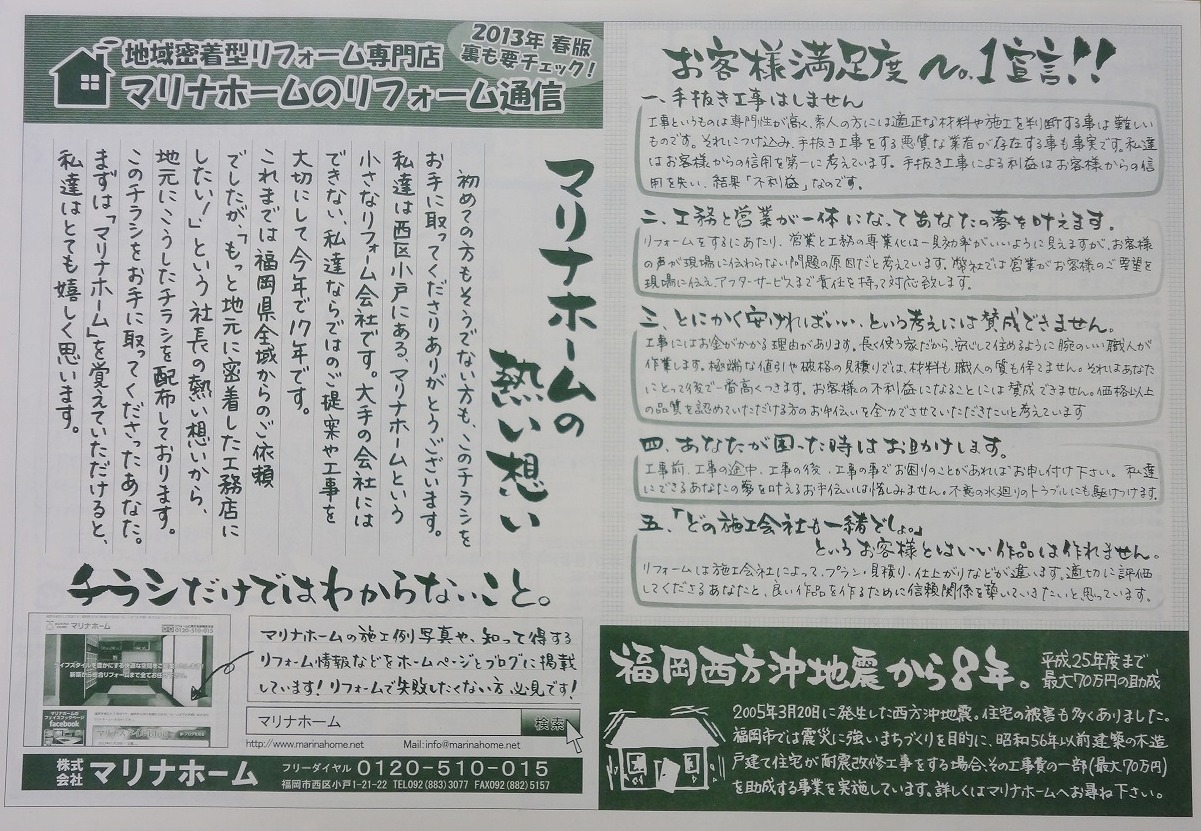 地域密着型リフォーム専門店
マリナホームのリフォーム通信
2013年 春版
裏も要チェック！
マリナホームの
熱い想い
初めての方もそうでない方も、このチラシを
お手に取ってくださりありがとうございます。
私達は西区小戸にある、マリナホームという
小さなリフォーム会社です。大手の会社には
できない、私達ならではのご提案や工事を
大切にして今年で17年です。
これまでは福岡県全域からのご依頼
でしたが、「もっと地元に密着した工務店に
したい！」という社長の熱い想いから、
地元にこうしたチラシを配布しております。
このチラシをお手に取ってくださったあなた。
まずは「マリナホーム」を覚えていただけると、
私達はとても嬉しく思います。
チラシだけではわからないこと。
マリナホーム
0120-510-015
ライフスタイルを豊かにする快適な空間をご
新築から総合リフォームまで全てお任
マリナホームの
フェイスブックページ
facebook
マリナホームの施工例写真や、知って得する
リフォーム情報などをホームページとブログに掲載
しています！リフォームで失敗したくない方必見です！
マリナホーム 検索
http://www.marinahome.net Mail:info@marinahome.net
株式会社 マリナホーム
フリーダイヤル 0120-510-015
福岡市西区小戸1-21-22 TEL092(883)3077 FAX092(882)5157
お客様満足度No.1宣言!!
一、手抜き工事はしません
工事というものは専門性が高く、素人の方には適正な材料や施工を判断する事は難しい
ものです。それにつけ込み、手抜き工事をする悪質な業者が存在する事も事実です。私達
はお客様からの信用を第一に考えています。手抜き工事による利益はお客様からの信
用を失い、結果「不利益」なのです。
二、工務と営業が一体になってあなたの夢を叶えます。
リフォームをするにあたり、営業と工務の専業化は一見効率がいいように見えますが、お客様
の声が現場に伝わらない問題の原因だと考えています。弊社では営業がお客様のご要望を
現場に伝え、アフターサービスまで責任を持って対応致します。
三、とにかく安ければいい、という考えには賛成できません。
工事にはお金がかかる理由があります。長く使う家だから、安心して住めるように腕のいい職人が
作業します。極端な値引や破格の見積りでは、材料も職人の質も保てません。それはあなた
にとって後で一番高くつきます。お客様の不利益になることには賛成できません。価格以上
の品質を認めていただける方のお手伝いを全力でさせていただきたいと考えています
四、あなたが困った時はお助けします。
工事前、工事の途中、工事の後、工事の事でお困りのことがあればお申し付け下さい。私達
にできるあなたの夢を叶えるお手伝いは惜しみません。不意の水廻りのトラブルにも駆けつけます。
五、「どの施工会社も一緒でしょ。」
というお客様とはいい作品は作れません。
リフォームは施工会社によって、プラン・見積り・仕上がりなどが違います。適切に評価
してくださるあなたと、良い作品を作るために信頼関係を築いていきたいと思っています。
福岡西方沖地震から8年。
平成25年度まで
最大70万円の助成
2005年3月20日に発生した西方沖地震。住宅の被害も多くありました。
福岡市では震災に強いまちづくりを目的に、昭和56年以前建築の木造
戸建て住宅が耐震改修工事をする場合、その工事費の一部(最大70万円)
を助成する事業を実施しています。詳しくはマリナホームへお尋ね下さい。